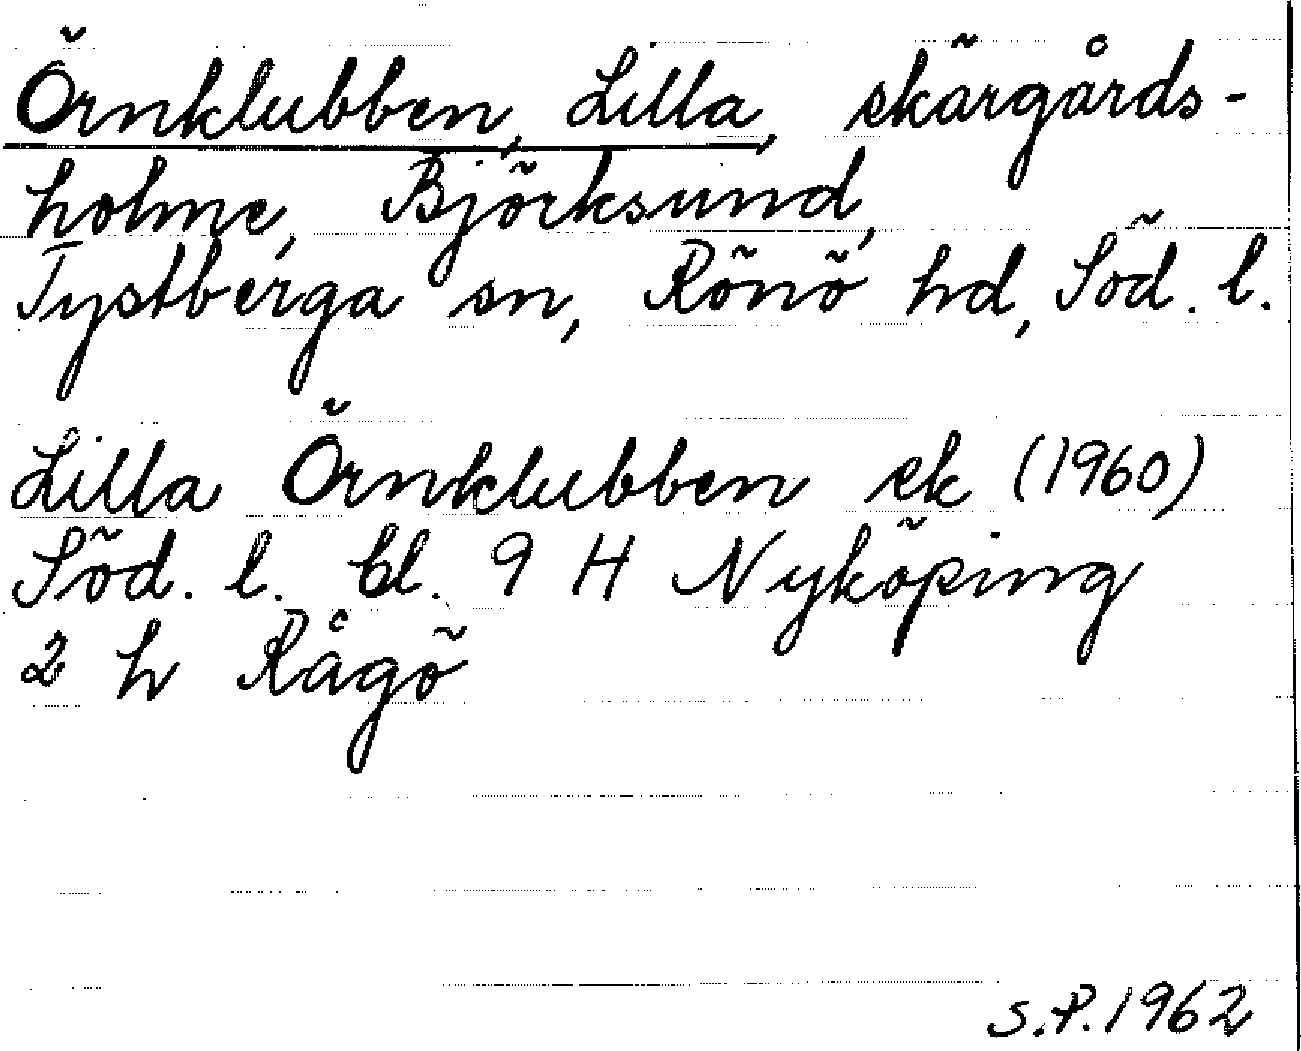 Örnklubben, Lilla, skärgårds-
holme, Björksund,
Tystberga sn, Rönö hd, Söd. l.
Lilla Örnklubben sk (1960)
Söd. l. bl. 9 H Nyköping
2 h Rågö
S.P. 1962